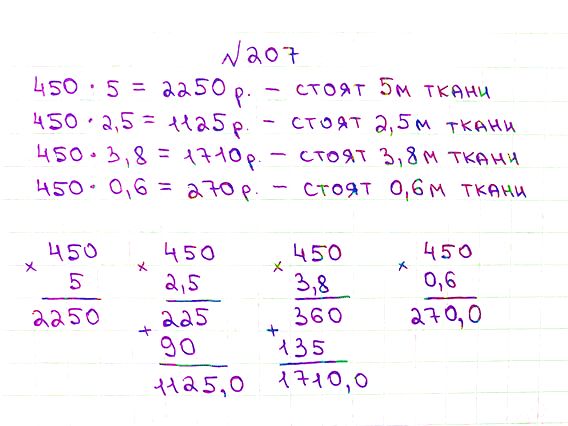 №207
450 · 5 = 2250 р. – стоят 5м ткани
450 · 2,5 = 1125 р. – стоят 2,5м ткани
450 · 3,8 = 1710 р. – стоят 3,8м ткани
450 · 0,6 = 270 р. – стоят 0,6м ткани
× 450 × 450 × 450 × 450
5 2,5 3,8 0,6
2250 + 225 + 360 270,0
90 135
1125,0 1710,0